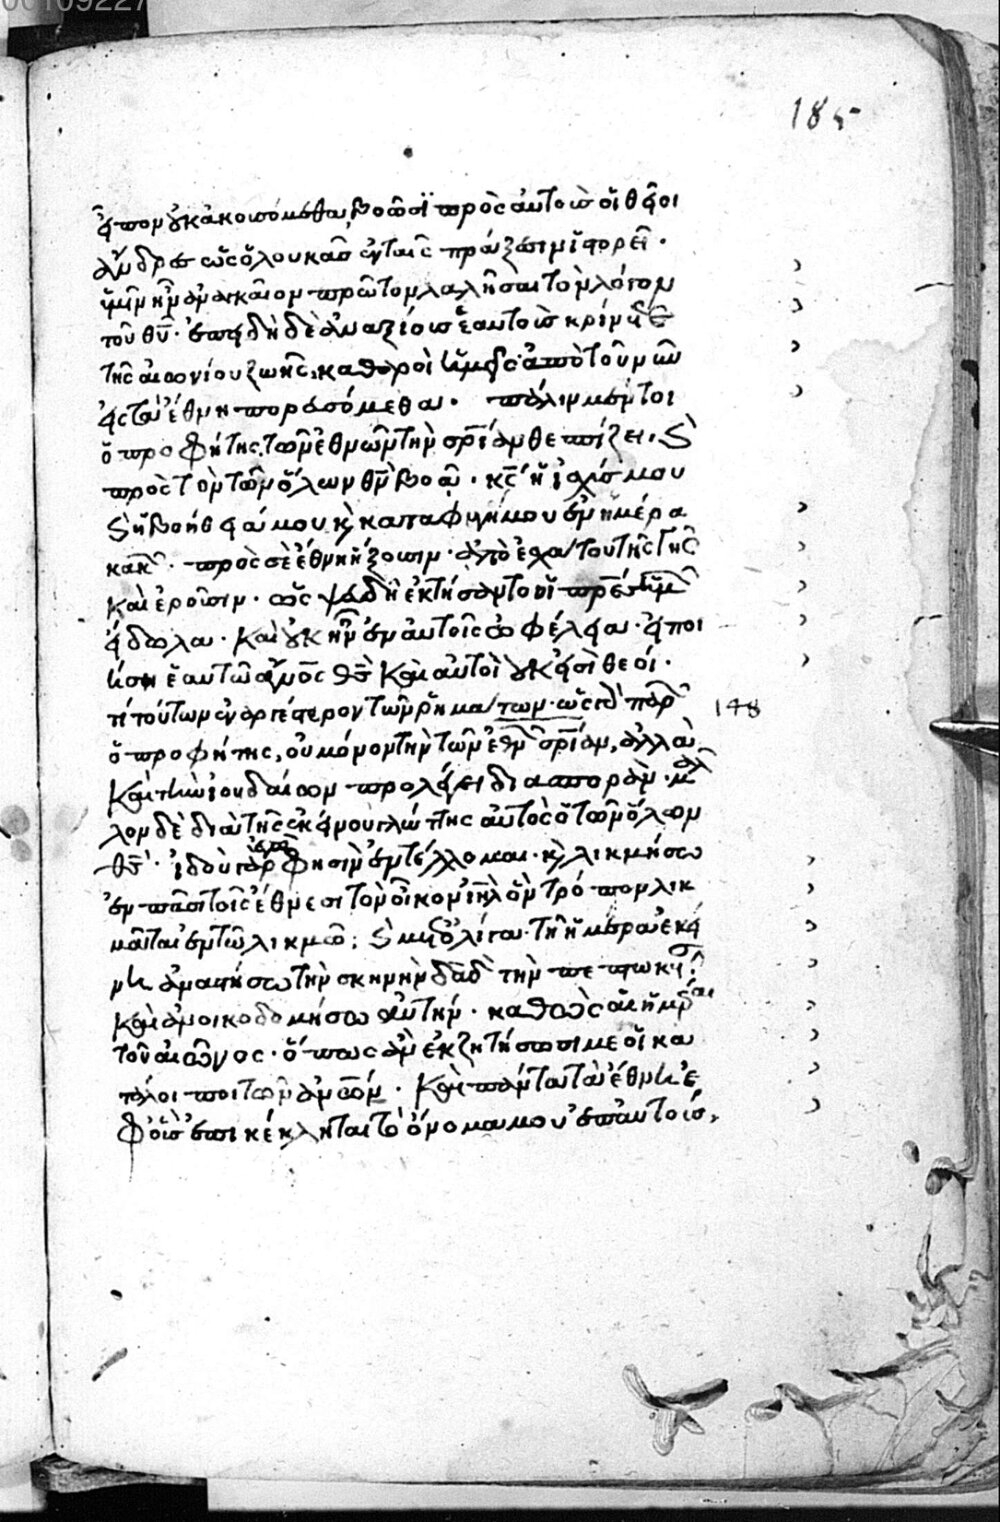 00109227
185
εἶπον οὐκ ἀκουσόμεθα, βοῶσι πρὸς αὐτοὺς οἱ θεῖοι
ἄνδρες ὡς ὁ λουκᾶς ἐν ταῖς πράξεσιν ἱστορεῖ·
ὑμῖν ἦν ἀναγκαῖον πρῶτον λαλῆσαι τὸν λόγον
τοῦ θυ· ἐπειδὴ δὲ ἀναξίους ἑαυτοὺς κρίνετε
τῆς αἰωνίου ζωῆς, καθαροὶ ἡμεῖς ἀπὸ τοῦ νῦν
εἰς τὰ ἔθνη πορευσόμεθα· πάλιν μέντοι
ὁ προφήτης τῶν ἐθνῶν τὴν σριαν θεσπίζει, καὶ
πρὸς τὸν τῶν ὅλων θν βοᾷ· κς ἡ ἰσχύς μου
καὶ ἡ βοήθειά μου καὶ καταφυγή μου ἐν ἡμέρα
κακῶν· πρὸς σὲ ἔθνη ἥξουσιν· ἀπὸ ἐσχάτου τῆς γῆς
καὶ ἐροῦσιν· ὡς ψευδῆ ἐκτήσαντο οἱ πρες ἡμῶν
εἴδωλα· καὶ οὐκ ἦν ἐν αὐτοῖς ὠφέλεια· εἰ ποι
ήσει ἑαυτῶ ἄνος θς καὶ αὐτοὶ οὐκ εἰσὶ θεοί·
τί τούτων ἐναργέστερον τῶν ῥημάτων· ὡς εἰ παρ
148
ὁ προφήτης, οὐ μόνον τὴν τῶν ἐθνῶν σριαν, ἀλλὰ
καὶ τὴν ἰουδαίων προλέγει διασποράν· μᾶλ
λον δὲ διὰ τῆς ἐκείνου γλώττης αὐτὸς ὁ τῶν ὅλων
θς· ἰδοὺ γὰρ ἐγὼ φησὶν ἐντέλλομαι· καὶ λικμήσω
ἐν πᾶσι τοῖς ἔθνεσι τὸν οἶκον ιηλ ὃν τρόπον λικ
μᾶται ἐν τῶ λικμῶ; καὶ μετ' ὀλίγα· τῆ ἡμέρα ἐκεί
νη ἀναστήσω τὴν σκηνὴν δαδ τὴν πεπτωκυῖαν
καὶ ἀνοικοδομήσω αὐτήν· καθὼς αἱ ἡμέραι
τοῦ αἰῶνος· ὅπως ἂν ἐκζητήσωσί με οἱ κα
τάλοιποι τῶν ἀνων· καὶ πάντα τὰ ἔθνη ἐ
φ' οὓς ἐπικέκληται τὸ ὄνομά μου ἐπ' αὐτούς,